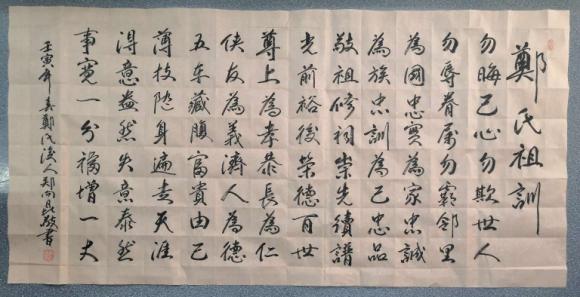 鄭氏祖訓
勿晦己心勿欺世人
勿辱眷属勿霸邻里
為國忠實為家忠誠
為族忠訓為己忠品
敬祖修祠崇先續譜
光前裕後榮德百世
尊上為孝恭長為仁
侠友為義濟人為德
五车藏腹富貴由己
薄技随身遍走天涯
得意盎然失意泰然
事寬一分福增一丈
壬寅年 鄭氏 人郑向 敬書